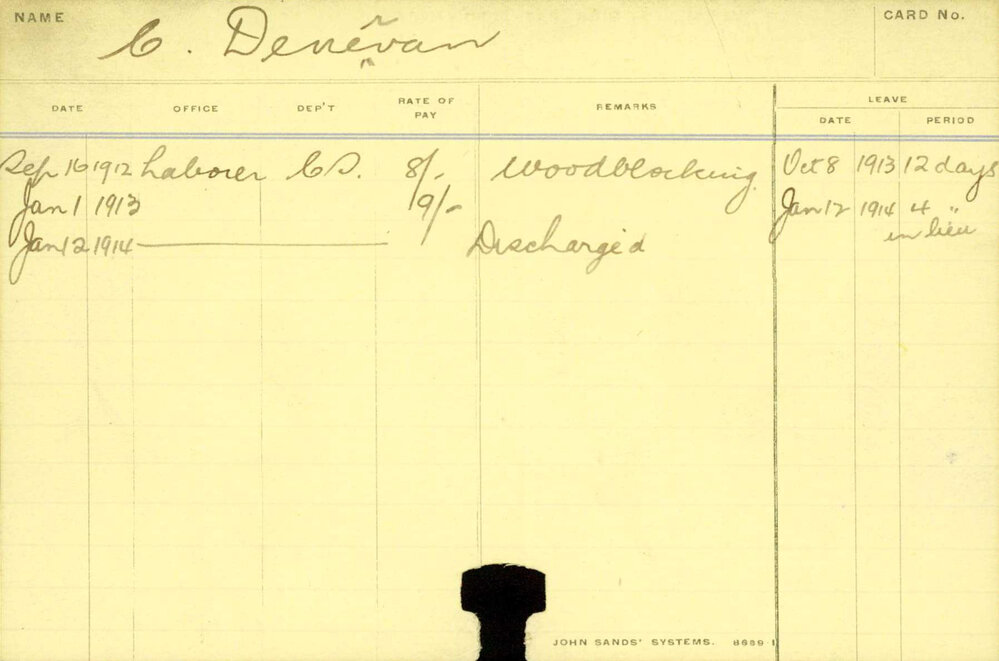 NAME
C. Denevan
CARD No.
DATE OFFICE DEP'T RATE OF PAY REMARKS LEAVE
DATE PERIOD
Sep 16 1912 Laborer C.S. 8/- Woodblocking Oct 8 1913 12 days
Jan 1 1913 9/- Jan 12 1914 4 "
in lieu
Jan 12 1914 Discharged
JOHN SANDS' SYSTEMS. 8689·1